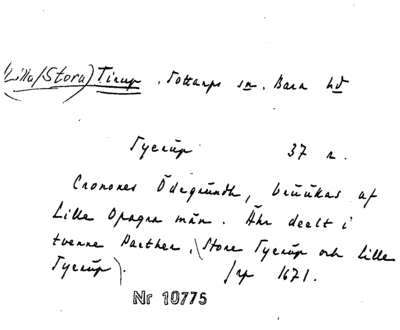 (Lilla/Stora) Tirup. Tottarps sn. Bara hd
Tyerüp 37 n.
Cronones Ödegrundh, brüükas af
Lille Opagra män. Ähr deelt i
tvenne Parther, (Store Tyerüp och Lille
Tyerüp). Jrp 1671.
Nr 10775